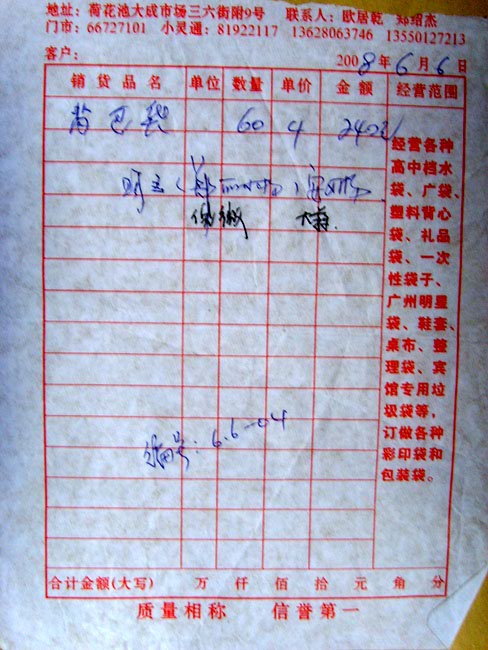 地址：荷花池大成市场三六街附9号 联系人：欧居乾 郑绍杰
门市：66727101 小灵通：81922117 13628063746 13550127213
客户： 2008年6月6日
销货品名 单位 数量 单价 金额 经营范围
背包袋 60 4 240
经营各种
高中档水
袋、广袋、
塑料背心
袋、礼品
袋、一次
性袋子、
广州明星
袋、鞋套、
桌布、整
理袋、宾
馆专用垃
圾袋等，
订做各种
彩印袋和
包装袋。
编号：6.6-04
合计金额(大写) 万 仟 佰 拾 元 角 分
质量相称 信誉第一